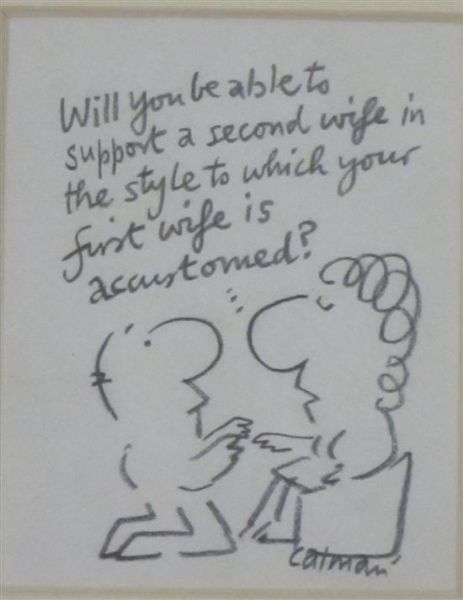 Will you be able to
support a second wife in
the style to which your
first wife is
accustomed?
calman